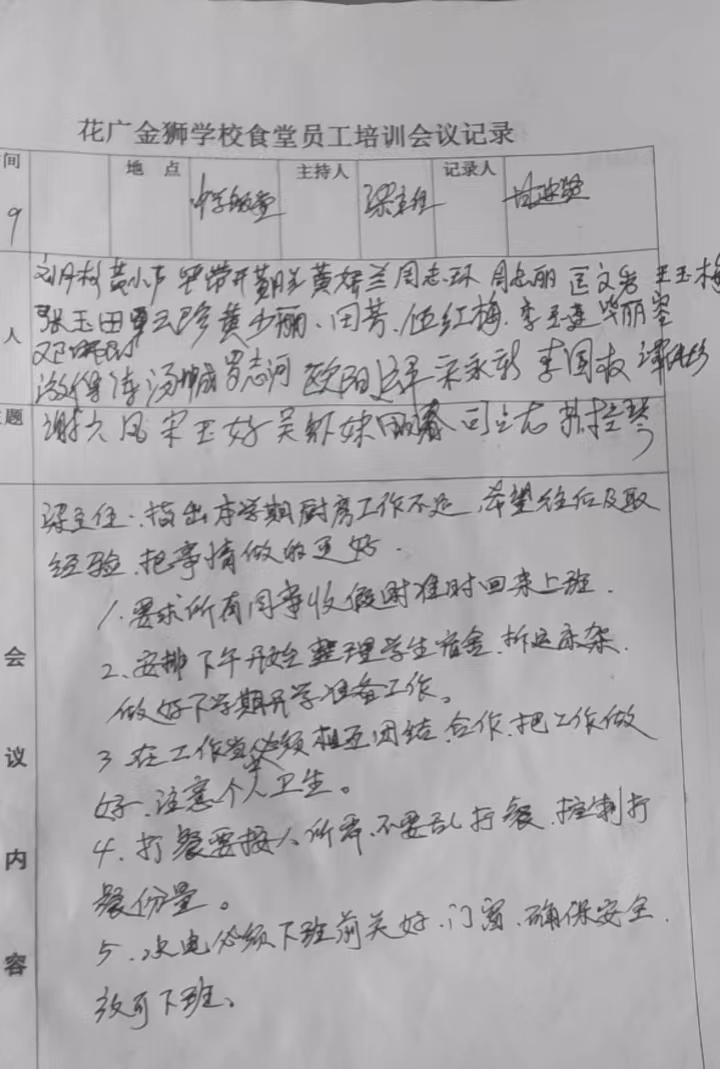 花广金狮学校食堂员工培训会议记录
间 地点 主持人 记录人
9 中学饭堂 梁主任
人 黄小芦 黄娇兰 周志环 周志丽 匡文秀 王玉梅
张玉田 覃云珍 黄少丽、田芳、伍红梅、李玉莲
罗志河 欧阳 宋永新 李国权
题 谢六凤 宋玉好 吴虾妹 司立志
梁主任：指出本学期厨房工作不足，希望往位及取
经验、把事情做的更好．
1．要求所有同事收假时准时回来上班．
2、安排下午开始整理学生宿舍、拆运床架．
做好下学期开学准备工作。
3 在工作当中必须相互团结、合作、把工作做
好、注意个人卫生。
4．打餐要按人所需、不要乱打餐、控制打
餐份量。
5、水电必须下班前关好、门窗、确保安全．
放可下班。
会议内容